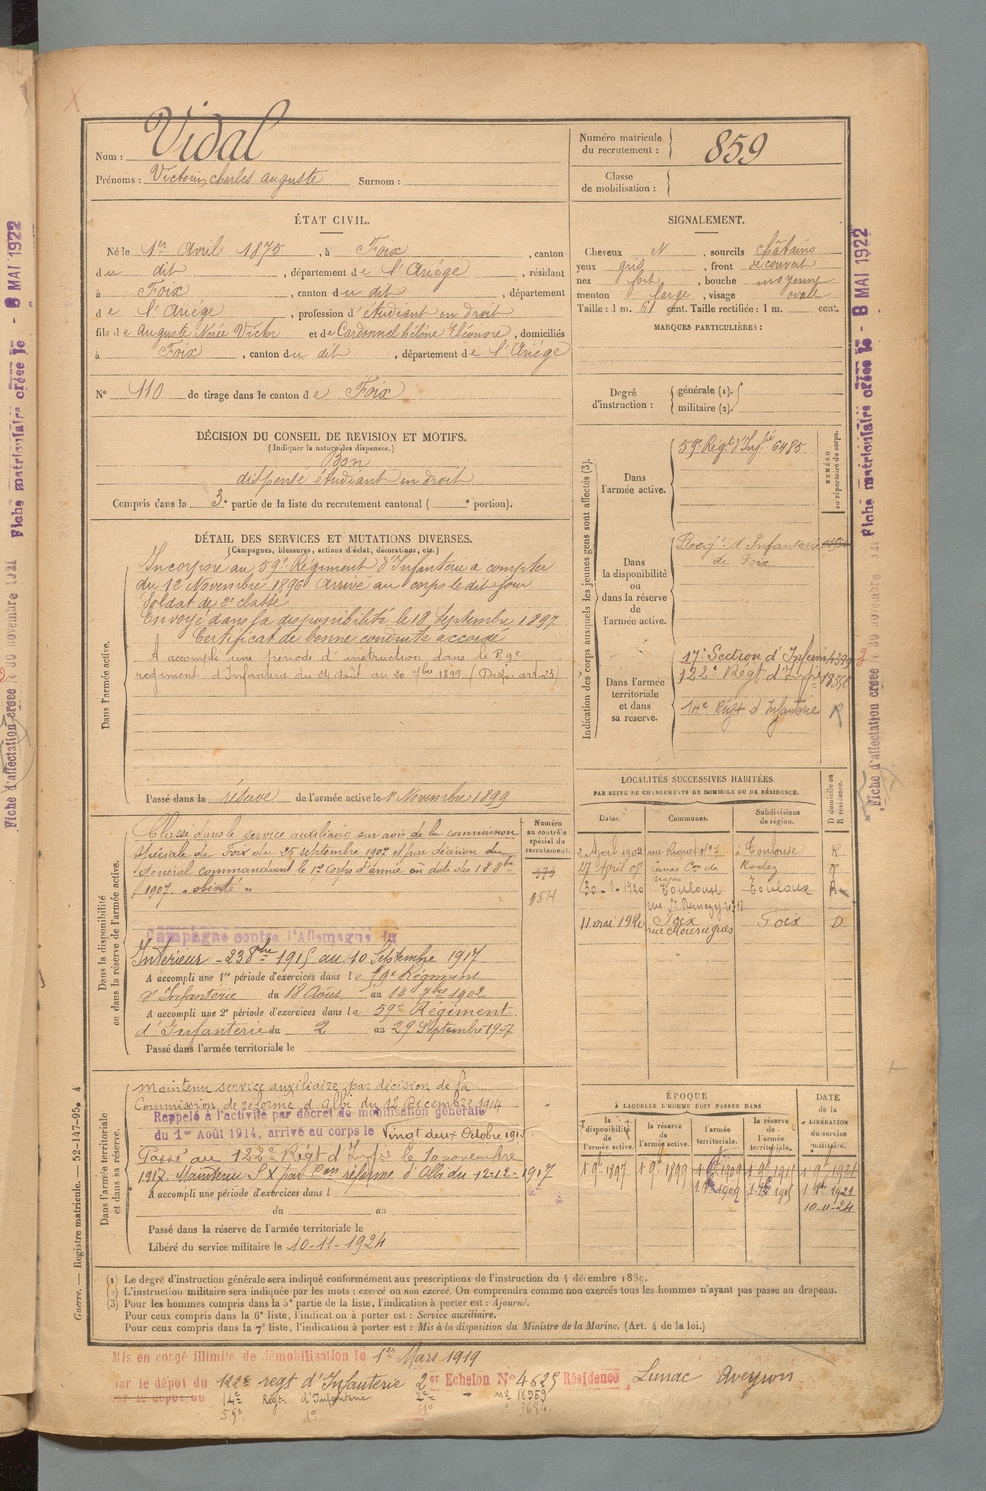 Nom : Vidal
Prénoms : Victorin, Charles Auguste Surnom :
Numéro matricule du recrutement : 859
Classe de mobilisation :
ÉTAT CIVIL.
Né le 1er Avril 1875, à Foix, canton
du dit, département de l'Ariége, résidant
à Foix, canton du dit, département
de l'Ariége, profession d'étudiant en droit
fils de Auguste Nérée Victor et de Cardonnel hélène Eléonore, domiciliés
à Foix, canton du dit, département de l'Ariége
N° 110 de tirage dans le canton de Foix
SIGNALEMENT.
Cheveux N, sourcils châtains
yeux gris, front découvert
nez fort, bouche moyenne
menton large, visage ovale
Taille : 1 m. 61 cent. Taille rectifiée : 1 m. cent.
MARQUES PARTICULIÈRES :
Degré d'instruction : générale (1). militaire (2).
DÉCISION DU CONSEIL DE REVISION ET MOTIFS.
(Indiquer la nature des dispenses.)
Bon
dispensé étudiant en droit
Compris dans la 3e partie de la liste du recrutement cantonal ( e portion).
DÉTAIL DES SERVICES ET MUTATIONS DIVERSES.
(Campagnes, blessures, actions d'éclat, décorations, etc.)
Dans l'armée active.
Incorporé au 59e Régiment d'Infanterie à compter
du 12 Novembre 1896. Arrivé au corps le dit jour
Soldat de 2e classe
Envoyé dans la disponibilité le 18 Septembre 1897
Certificat de bonne conduite accordé
A accompli une période d'instruction dans le 59e
régiment d'Infanterie du 24 août au 20 7bre 1899 (Disp. art. 23)
Passé dans la réserve de l'armée active le 1 Novembre 1899
Indication des corps auxquels les jeunes gens sont affectés (3).
NUMÉRO au répertoire du corps.
Dans l'armée active.
59e Régt d'Infrie 6485
Dans la disponibilité ou dans la réserve de l'armée active.
Régt d'Infanterie
de Foix
Dans l'armée territoriale et dans sa réserve.
17e Section d'Infirm
122e Régt d'Infie
14e Régt d'Infanterie R
LOCALITÉS SUCCESSIVES HABITÉES
PAR SUITE DE CHANGEMENTS DE DOMICILE OU DE RÉSIDENCE.
Dates. Communes. Subdivisions de région. D domicile ou R résidence.
2 April 1902 rue Riquet à Toulouse R
27 April 07 Rodez R
30-1-1920 Toulouse Toulouse R
11 mai 1920 Foix Foix D
Dans la disponibilité ou dans la réserve de l'armée active.
Numéro au contrôle spécial du recrutement.
Classé dans le service auxiliaire sur avis de la commission
spéciale de Foix du 25 septembre 1907 et par décision du
Général commandant le 17e corps d'armée en date du 18 8bre
1907. "obésité"
154
Campagne contre l'Allemagne du
Intérieur - 23 8bre 1915 au 10 Septembre 1917
A accompli une 1re période d'exercices dans le 59e Régiment
d'Infanterie du 18 Août au 14 7bre 1902
A accompli une 2e période d'exercices dans le 59e Régiment
d'Infanterie du 2 au 29 Septembre 1907
Passé dans l'armée territoriale le
Dans l'armée territoriale et dans sa réserve.
Maintenu service auxiliaire par décision de la
Commission de réforme d'Albi du 12 Décembre 1914
Rappelé à l'activité par décret de mobilisation générale
du 1er Août 1914, arrivé au corps le Vingt deux Octobre 1915
Passé au 122e Régt d'Infie le 10 novembre
1917. Maintenu S X par Con réforme d'Albi du 12-12-1917
A accompli une période d'exercices dans l
du au
Passé dans la réserve de l'armée territoriale le
Libéré du service militaire le 10-11-1924
ÉPOQUE
À LAQUELLE L'HOMME DOIT PASSER DANS
la disponibilité de l'armée active. la réserve de l'armée active. l'armée territoriale. la réserve de l'armée territoriale. DATE de la LIBÉRATION du service militaire.
10-11-24
(1) Le degré d'instruction générale sera indiqué conformément aux prescriptions de l'instruction du 4 décembre 1889.
(2) L'instruction militaire sera indiquée par les mots : exercé ou non exercé. On comprendra comme non exercés tous les hommes n'ayant pas passé au drapeau.
(3) Pour les hommes compris dans la 5e partie de la liste, l'indication à porter est : Ajourné.
Pour ceux compris dans la 6e liste, l'indication à porter est : Service auxiliaire.
Pour ceux compris dans la 7e liste, l'indication à porter est : Mis à la disposition du Ministre de la Marine. (Art. 4 de la loi.)
Mis en congé illimité de démobilisation le 1er Mars 1919
par le dépôt du 122e regt d'Infanterie 2er Echelon N° 4625 Résidence Lunac Aveyron
14e Régt d'Infanterie
59e
Guerre. — Registre matricule. — 52-147-95. 4
Fiche matriculaire créée le - 8 MAI 1922
Fiche d'affectation créée le 30 novembre 1921
Fiche matriculaire créée le - 8 MAI 1922
Fiche d'affectation créée le 30 novembre 1921